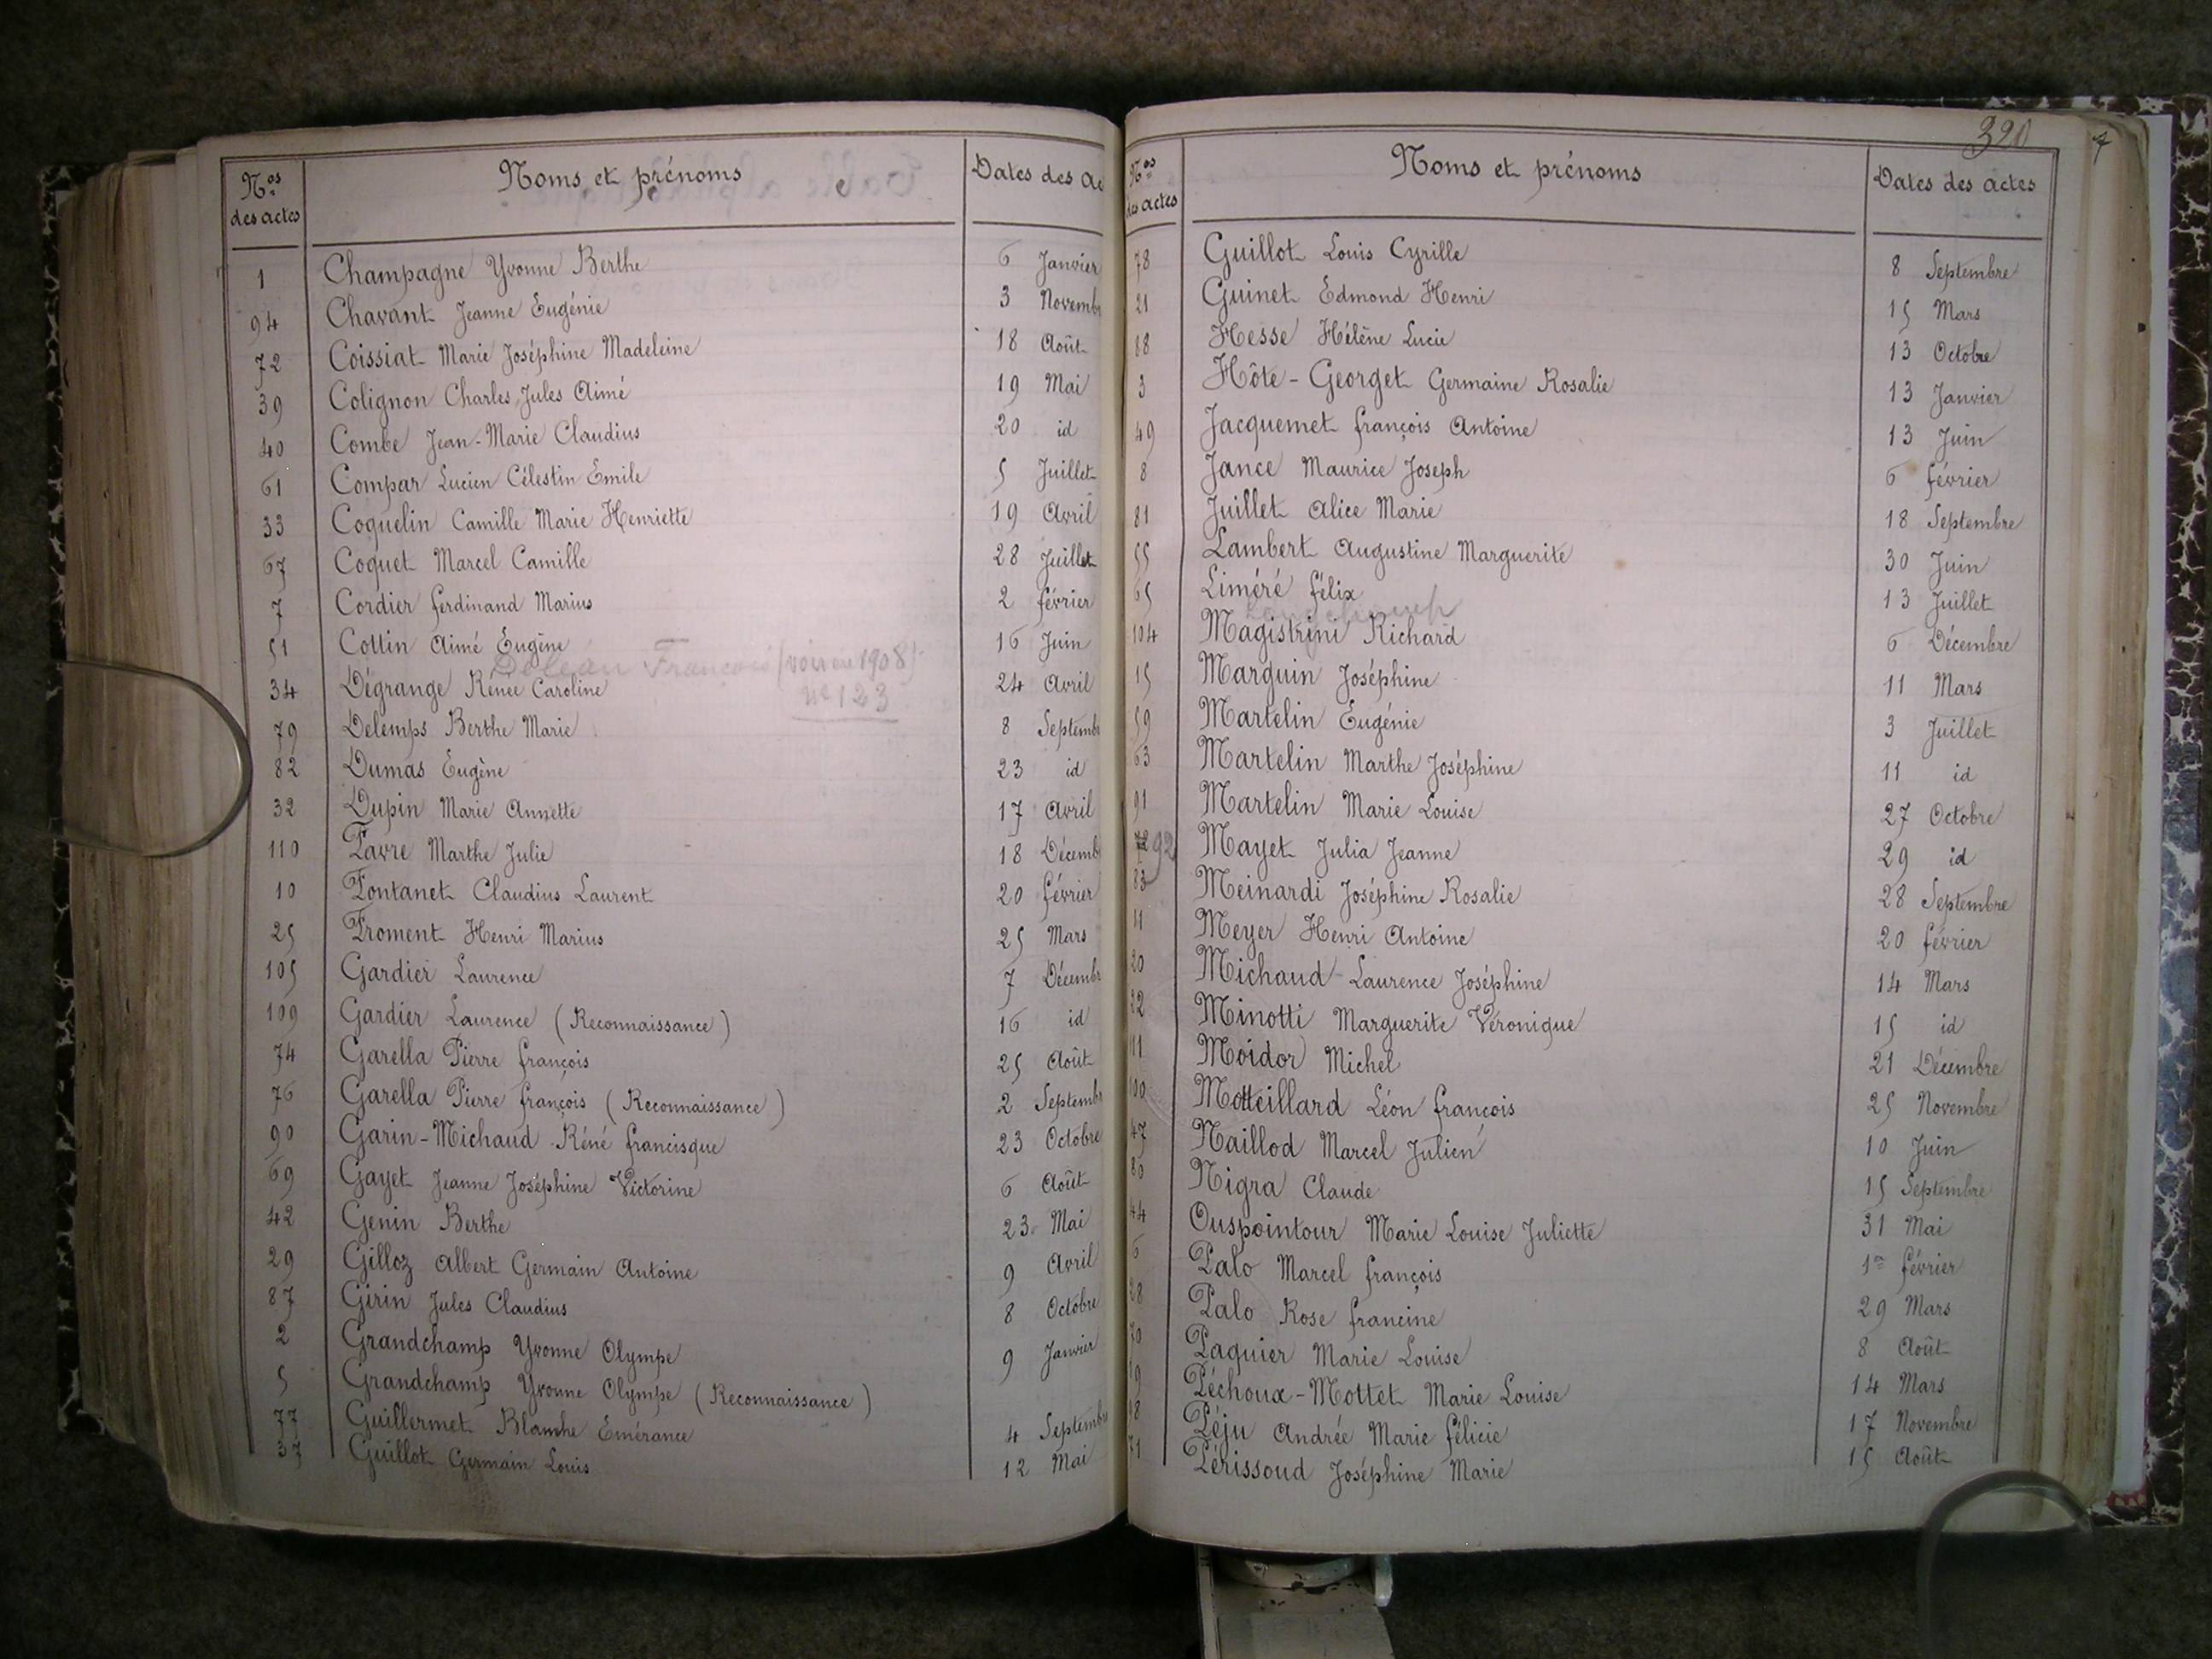 Nos des actes Noms et prénoms Dates des ac
1 Champagne Yvonne Berthe 6 Janvier
94 Chavant Jeanne Eugénie 3 Novemb
72 Coissiat Marie Joséphine Madeleine 18 Août
39 Colignon Charles Jules Aimé 19 Mai
40 Combe Jean-Marie Claudius 20 id
61 Compar Lucien Célestin Emile 5 Juillet
33 Coquelin Camille Marie Henriette 19 Avril
67 Coquet Marcel Camille 28 Juillet
7 Cordier ferdinand Marius 2 février
51 Cottin Aimé Eugène 16 Juin
François (voir 1908)
34 Dégrange Rénée Caroline 24 Avril
nº 123
79 Delemps Berthe Marie 8 Septemb
82 Dumas Eugène 23 id
32 Dupin Marie Annette 17 Avril
110 Favre Marthe Julie 18 Décemb
10 Fontanet Claudius Laurent 20 février
25 Froment Henri Marius 25 Mars
105 Gardier Laurence 7 Décemb
109 Gardier Laurence (Reconnaissance) 16 id
74 Garella Pierre françois 25 Août
76 Garella Pierre françois (Reconnaissance) 2 Septemb
90 Garin-Michaud Réné francisque 23 Octobre
69 Gayet Jeanne Joséphine Victorine 6 Août
42 Genin Berthe 23 Mai
29 Gilloz Albert Germain Antoine 9 Avril
87 Girin Jules Claudius 8 Octobre
2 Grandchamp Yvonne Olympe 9 Janvier
5 Grandchamp Yvonne Olympe (Reconnaissance)
77 Guillermet Blanche Emérance 4 Septembr
37 Guillot Germain Louis 12 Mai
320 7
Nos des actes Noms et prénoms Dates des actes
78 Guillot Louis Cyrille 8 Septembre
21 Guinet Edmond Henri 15 Mars
88 Hesse Hélène Lucie 13 Octobre
3 Hôte-Georget Germaine Rosalie 13 Janvier
49 Jacquemet françois Antoine 13 Juin
8 Jance Maurice Joseph 6 février
81 Juillet Alice Marie 18 Septembre
55 Lambert Augustine Marguerite 30 Juin
65 Liméré félix 13 Juillet
104 Magistrini Richard 6 Décembre
15 Marguin Joséphine 11 Mars
59 Martelin Eugénie 3 Juillet
63 Martelin Marthe Joséphine 11 id
91 Martelin Marie Louise 27 Octobre
92 Mayet Julia Jeanne 29 id
83 Meinardi Joséphine Rosalie 28 Septembre
11 Meyer Henri Antoine 20 février
20 Michaud Laurence Joséphine 14 Mars
22 Minotti Marguerite Véronique 15 id
111 Moidor Michel 21 Décembre
100 Motteillard Léon françois 25 Novembre
47 Naillod Marcel Julien 10 Juin
80 Nigra Claude 15 Septembre
44 Ouspointour Marie Louise Juliette 31 Mai
6 Palo Marcel françois 1er février
28 Palo Rose francine 29 Mars
70 Paquier Marie Louise 8 Août
19 Péchoux-Mottet Marie Louise 14 Mars
98 Péju Andrée Marie félicie 17 Novembre
71 Périssoud Joséphine Marie 15 Août